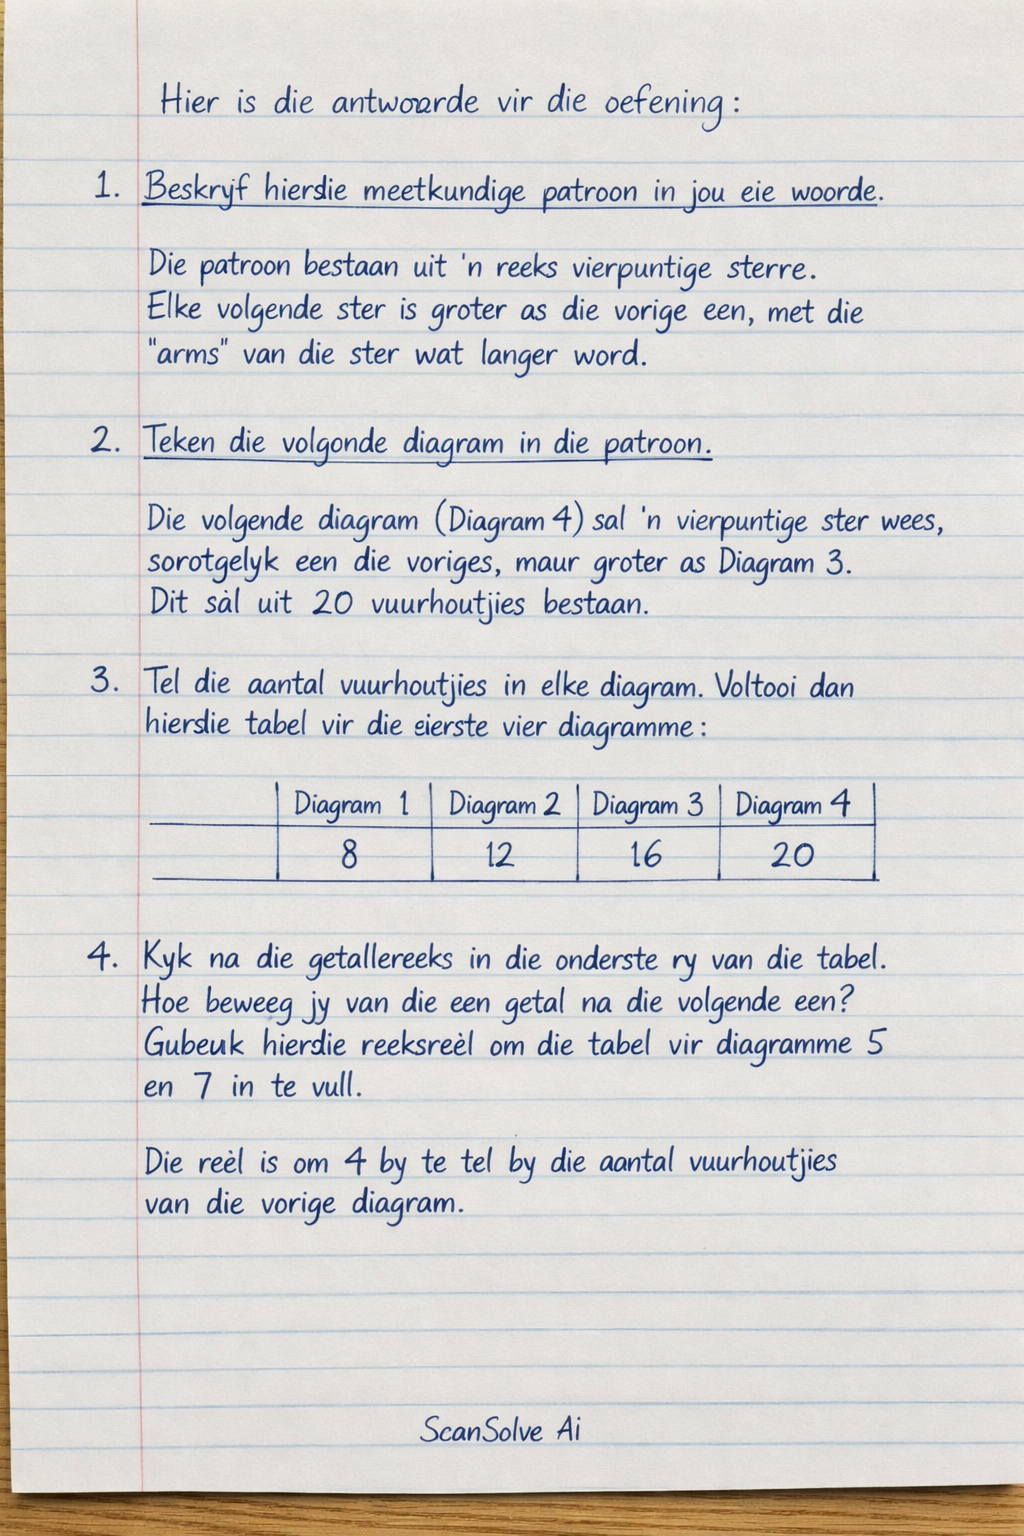 Hier is die antwoorde vir die oefening:
1. Beskryf hierdie meetkundige patroon in jou eie woorde.
Die patroon bestaan uit 'n reeks vierpuntige sterre.
Elke volgende ster is groter as die vorige een, met die
"arms" van die ster wat langer word.
2. Teken die volgonde diagram in die patroon.
Die volgende diagram (Diagram 4) sal 'n vierpuntige ster wees,
sorotgelyk een die voriges, maur groter as Diagram 3.
Dit sàl uit 20 vuurhoutjies bestaan.
3. Tel die aantal vuurhoutjies in elke diagram. Voltooi dan
hierdie tabel vir die eierste vier diagramme:
Diagram 1 Diagram 2 Diagram 3 Diagram 4
8 12 16 20
4. Kyk na die getallereeks in die onderste ry van die tabel.
Hoe beweeg jy van die een getal na die volgende een?
Gubeuk hierdie reeksreèl om die tabel vir diagramme 5
en 7 in te vull.
Die reèl is om 4 by te tel by die aantal vuurhoutjies
van die vorige diagram.
ScanSolve Ai